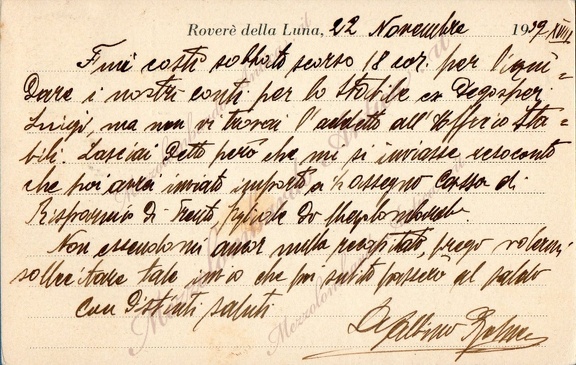 Roverè della Luna, 22 Novembre 1939 XVIII
Fui costì sabbato scorso 18 cor. per liqui-
dare i nostri conti per lo stabile ex Degasperi
Luigi, ma non vi trovai l'addetto all'Ufficio Sta-
bili. Lasciai detto però che mi si inviasse resoconto
che poi avrei inviato importo a assegno Cassa di
Risparmio di Trento filiale di Mezolombardo.
Non essendomi ancor nulla recapitato, prego volermi
sollecitare tale invio che poi subito passerò al saldo
Con distinti saluti
Albino